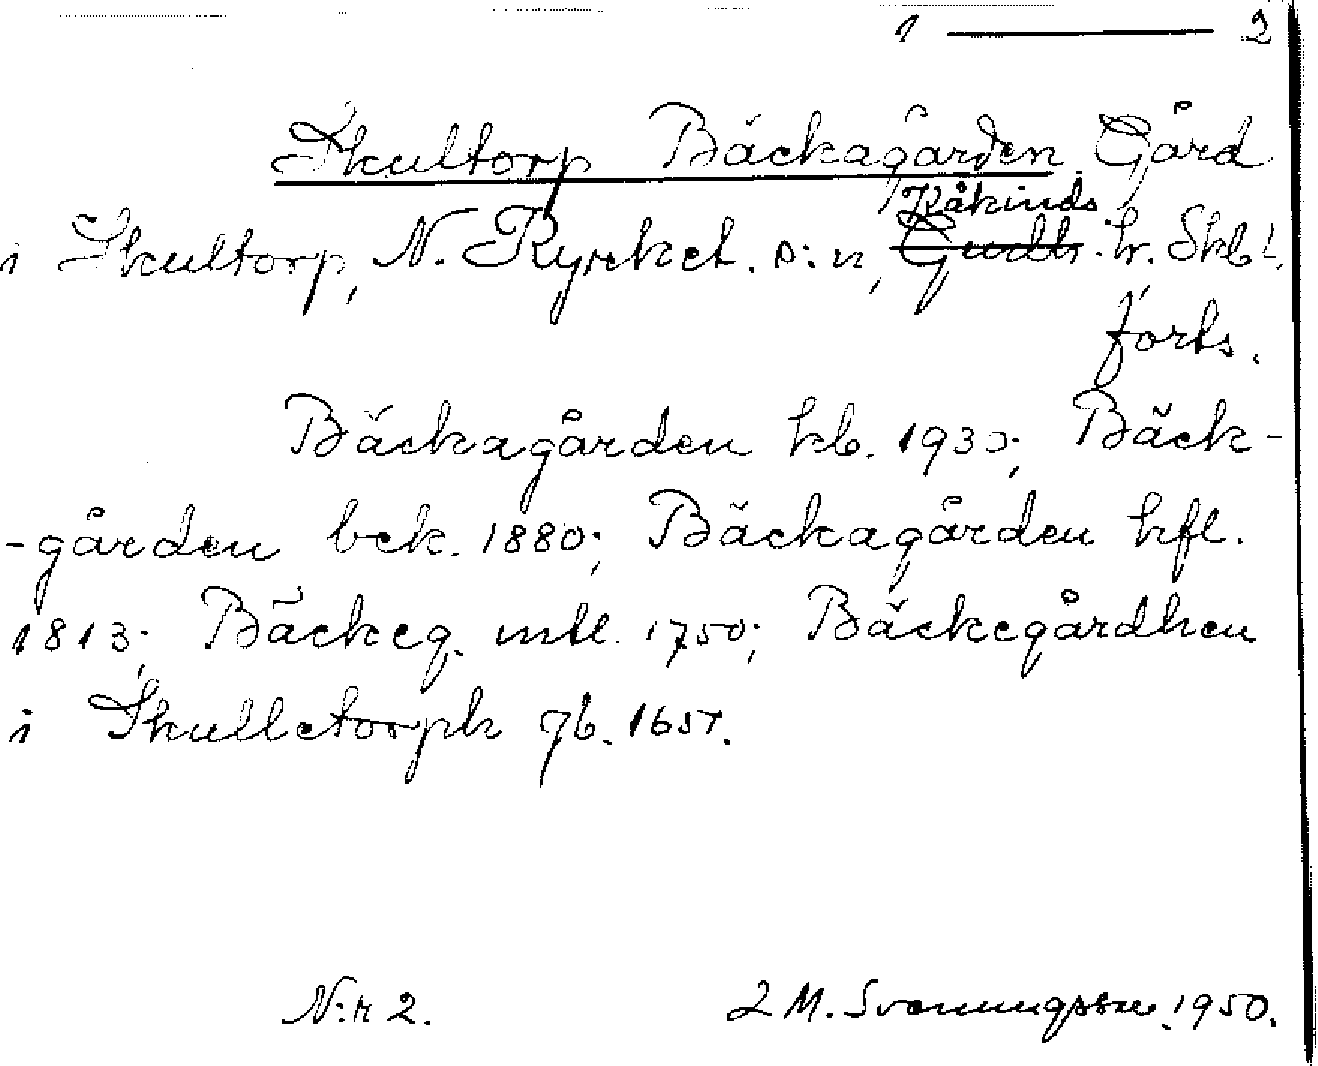 1 — 2
Skultorp Bäckagården Gård
Kåkinds
i Skultorp, N. Kyrket. s:n, Gudh. hr. Skbl.
forts.
Bäckagården kb. 1930; Bäck-
-gården bek. 1880; Bäckagården hfl.
1813; Bäckeg. mtl. 1750; Bäckegårdhen
i Skulletorph jb. 1657.
N:r 2. L M. Svenungsson. 1950.